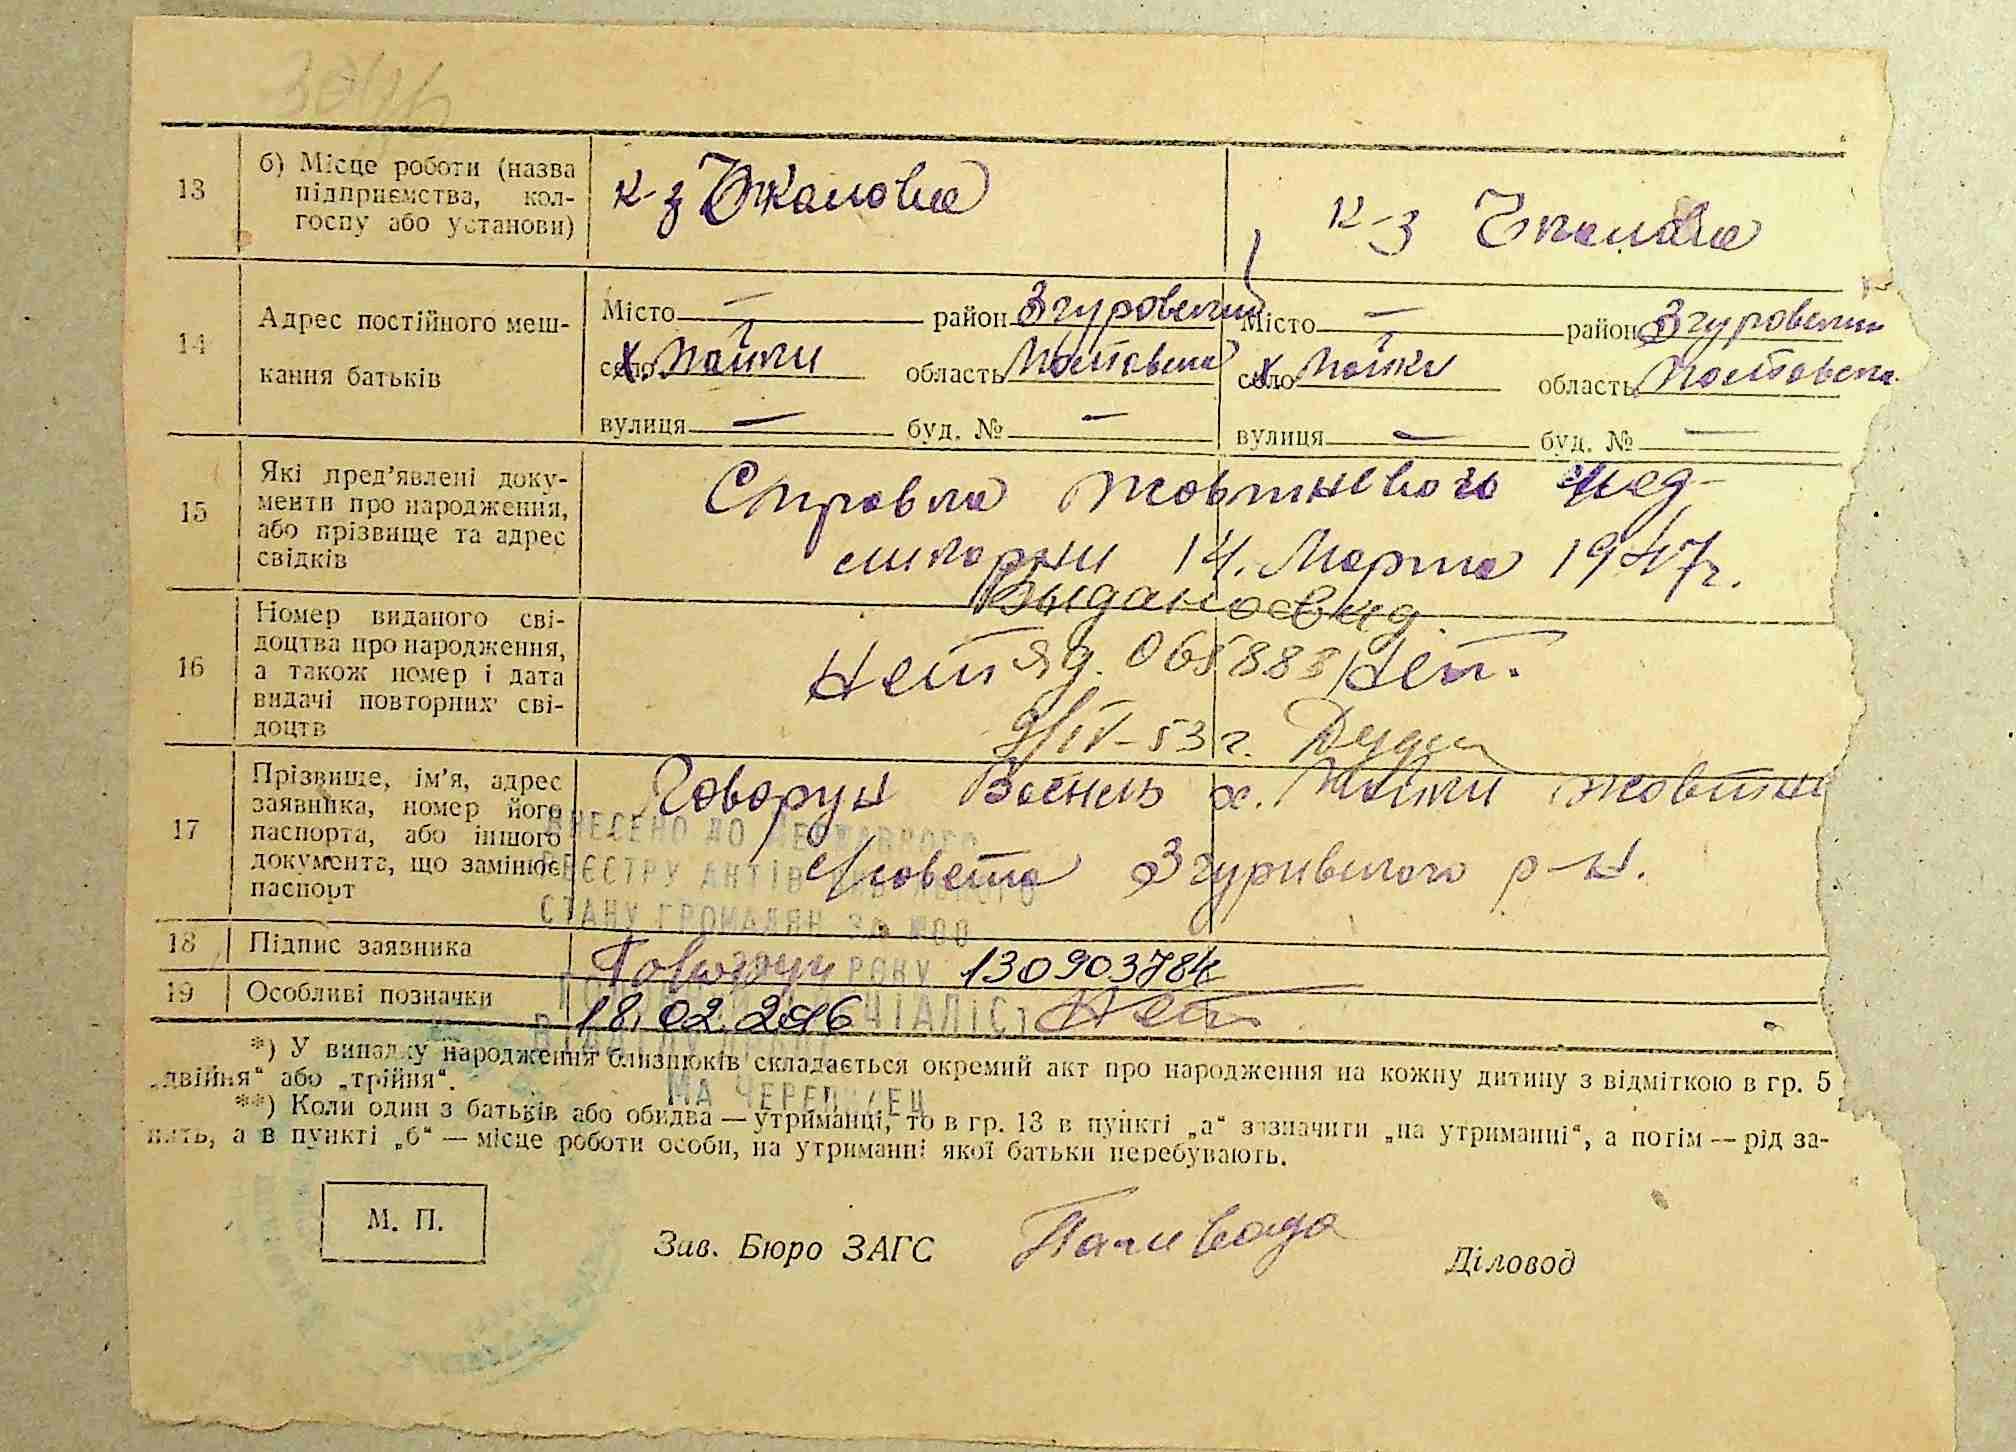 13
б) Місце роботи (назва
підприємства, кол-
госпу або установи)
к-з Чкалова
к-з Чкалова
14
Адрес постійного меш-
кання батьків
Місто — район Згуровский
село х. Пайки область Полтавська
вулиця — буд. № —
Місто — район Згуровский
село х. Пайки область Полтавська
вулиця — буд. № —
15
Які пред’явлені доку-
менти про народження,
або прізвище та адрес
свідків
Справка Жовтневого мед-
14. Марта 1947 г.
16
Номер виданого сві-
доцтва про народження,
а також номер і дата
видачі повторних сві-
доцтв
Выдано свид.
Нет ЯД. 065883 Нет.
9/IV-53 г.
17
Прізвище, ім’я, адрес
заявника, номер його
паспорта, або іншого
документа, що замінює
паспорт
Говорун х. Пайки Жовтне
с/совета Згурівського р-н.
ВНЕСЕНО ДО ДЕРЖАВНОГО
РЕЄСТРУ АКТІВ ЦИВІЛЬНОГО
СТАНУ ГРОМАДЯН ЗА №00
РОКУ
ГОЛОВНИЙ СПЕЦІАЛІСТ
18
Підпис заявника
Говорун
130903784
19
Особливі позначки
18.02.2016
Нет
*) У випадку народження близнюків складається окремий акт про народження на кожну дитину з відміткою в гр. 5
„двійня“ або „трійня“.
**) Коли один з батьків або обидва — утриманці, то в гр. 13 в пункті „а“ зазначити „на утриманні“, а потім — рід за-
нять, а в пункті „б“ — місце роботи особи, на утриманні якої батьки перебувають.
М. П.
Зав. Бюро ЗАГС
Паливода
Діловод